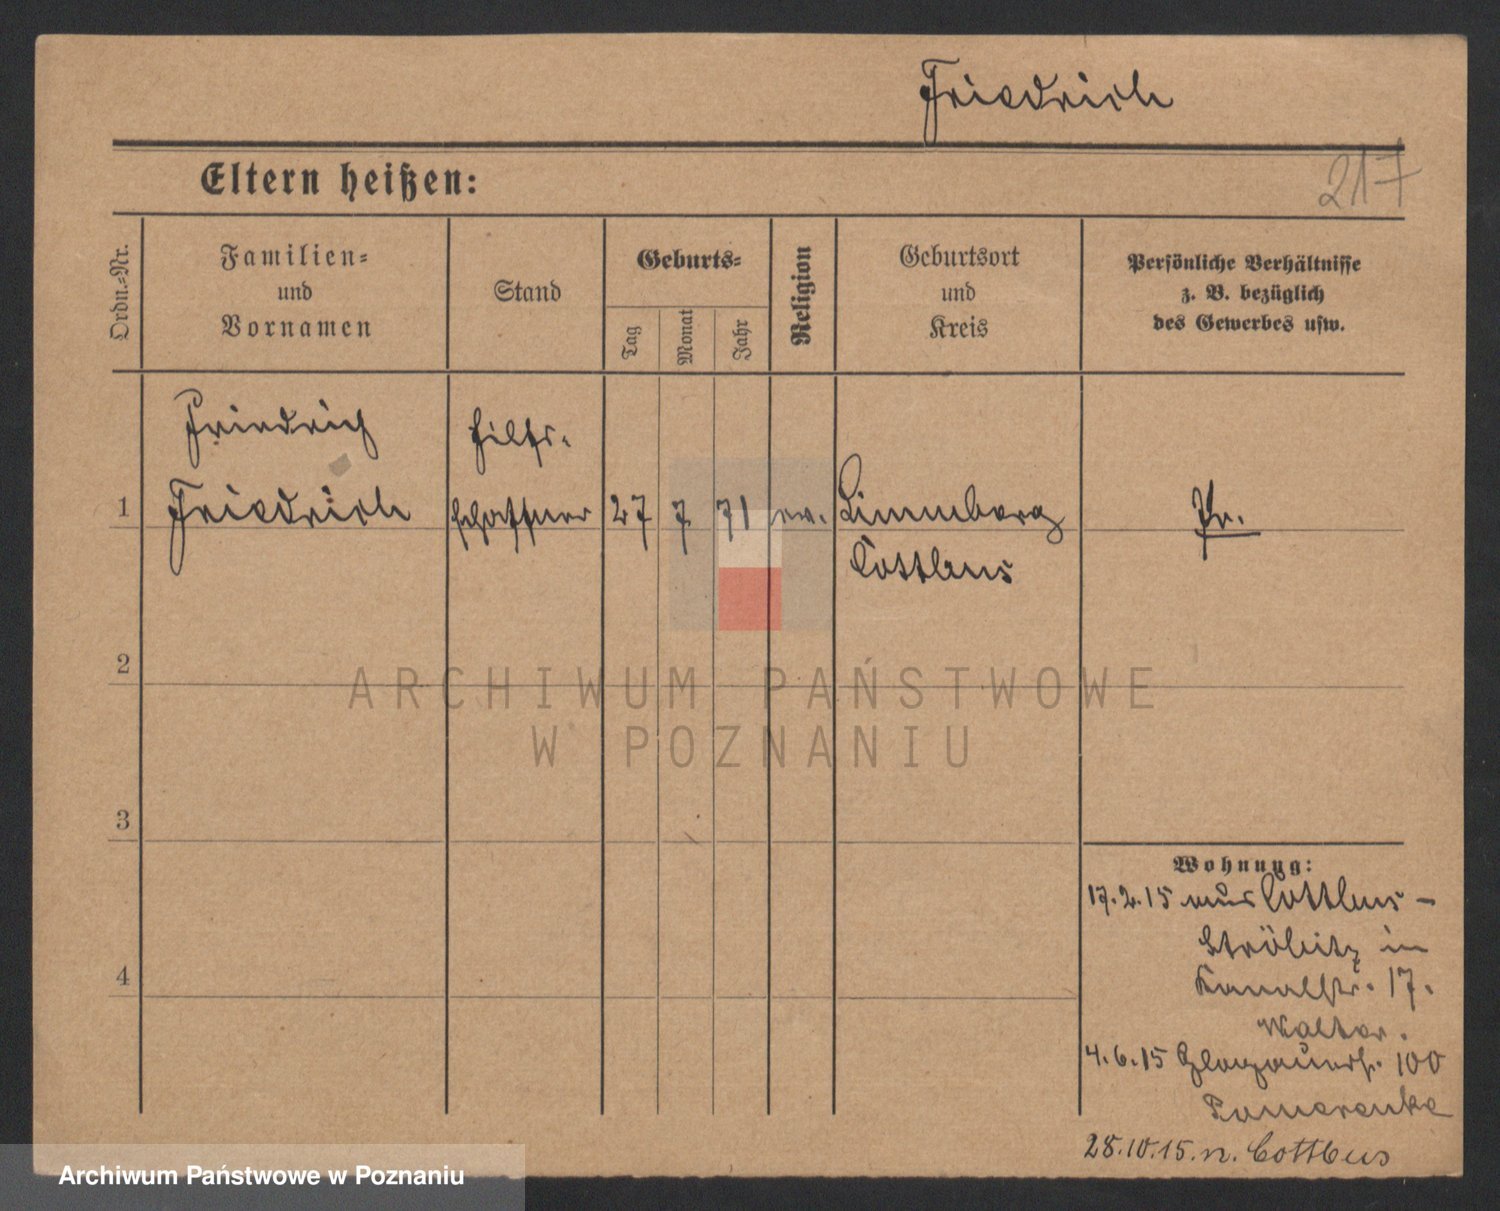 Friedrich
217
Eltern heißen:
Ordn.-Nr.
Familien-
und
Vornamen
Stand
Geburts-
Tag
Monat
Jahr
Religion
Geburtsort
und
Kreis
Persönliche Verhältnisse
z. B. bezüglich
des Gewerbes usw.
Friedrich
Hilfs-
1 Friedrich schaffner 27 7 71 ev. Limmberg Pr.
Cottbus
2
ARCHIWUM PAŃSTWOWE
W POZNANIU
3
Wohnung:
17.2.15 aus Cottbus-
Ströbitz in
4
Kanalstr. 17.
Walter.
4.6.15 Glogauerstr. 100
Pomerenke
28.10.15. n. Cottbus
Archiwum Państwowe w Poznaniu